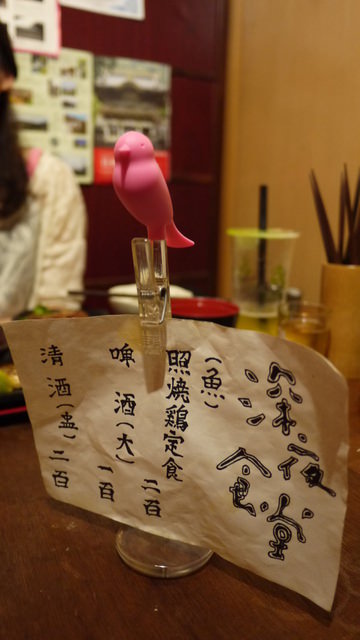 深夜食堂
(魚)
照焼鶏定食 二百
啤酒(大) 一百
清酒(盃) 二百